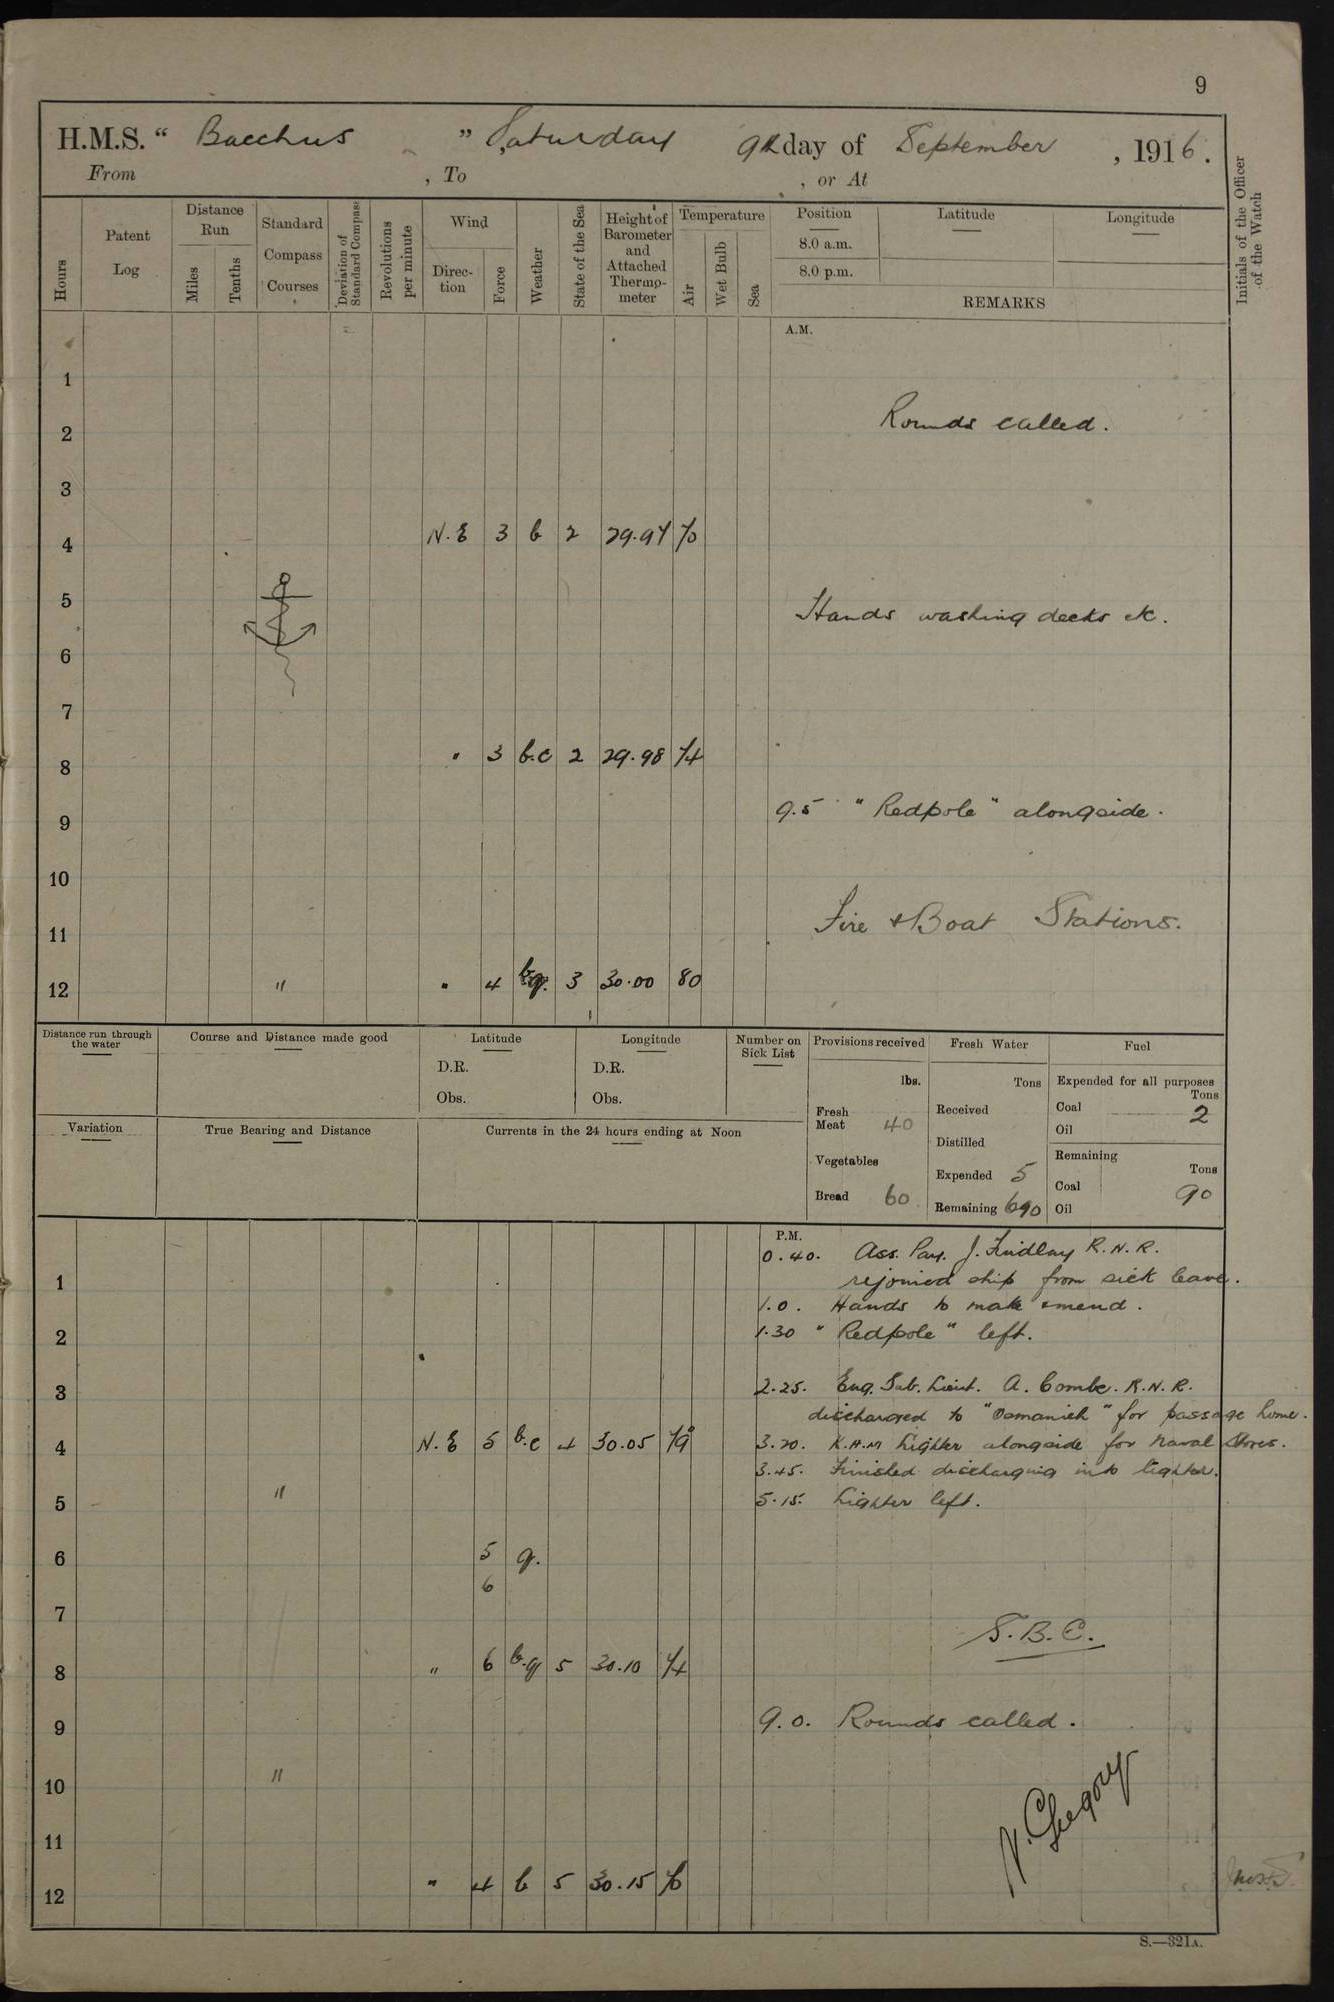 9
H.M.S. “ Bacchus ” Saturday 9th day of September , 1916.
From , To , or At
Hours
Patent Log
Distance Run
Miles
Tenths
Standard Compass Courses
Deviation of Standard Compass
Revolutions per minute
Wind
Direc-tion
Force
Weather
State of the Sea
Height of Barometer and Attached Thermo-meter
Temperature
Air
Wet Bulb
Sea
Position Latitude Longitude
8.0 a.m.
8.0 p.m.
REMARKS
Initials of the Officer of the Watch
A.M.
1
Rounds called.
2
3
4 N.E 3 b 2 29.97 70
5 Hands washing decks etc.
6
7
8 " 3 b.c 2 29.98 74
9 9.5 "Redpole" alongside.
10
11 Fire & Boat Stations.
12 " " 4 q. 3 30.00 80
Distance run through the water
Course and Distance made good
Latitude
D.R.
Obs.
Longitude
D.R.
Obs.
Number on Sick List
Provisions received
lbs.
Fresh Meat 40
Vegetables
Bread 60
Fresh Water
Tons
Received
Distilled
Expended 5
Remaining 690
Fuel
Expended for all purposes
Tons
Coal 2
Oil
Remaining
Tons
Coal 90
Oil
Variation
True Bearing and Distance
Currents in the 24 hours ending at Noon
P.M.
0.40. Ass. Pay. J. Findlay R.N.R.
1 rejoined ship from sick leave.
1.0. Hands to make & mend.
2 1.30 "Redpole" left.
3 2.25. Eng. Sub. Lieut. A. Combe. R.N.R.
discharged to "Osmanieh" for passage home.
4 N.E 5 b.c 4 30.05 79 3.20. K.H.M Lighter alongside for Naval Stores.
3.45. Finished discharging into lighter.
5 " 5.15. Lighter left.
6 5 q.
6
7 S.B.C.
8 " 6 b.q 5 30.10 74
9 9.0. Rounds called.
10 "
11 N. Gregory
12 " 4 b 5 30.15 76
S.—321A.